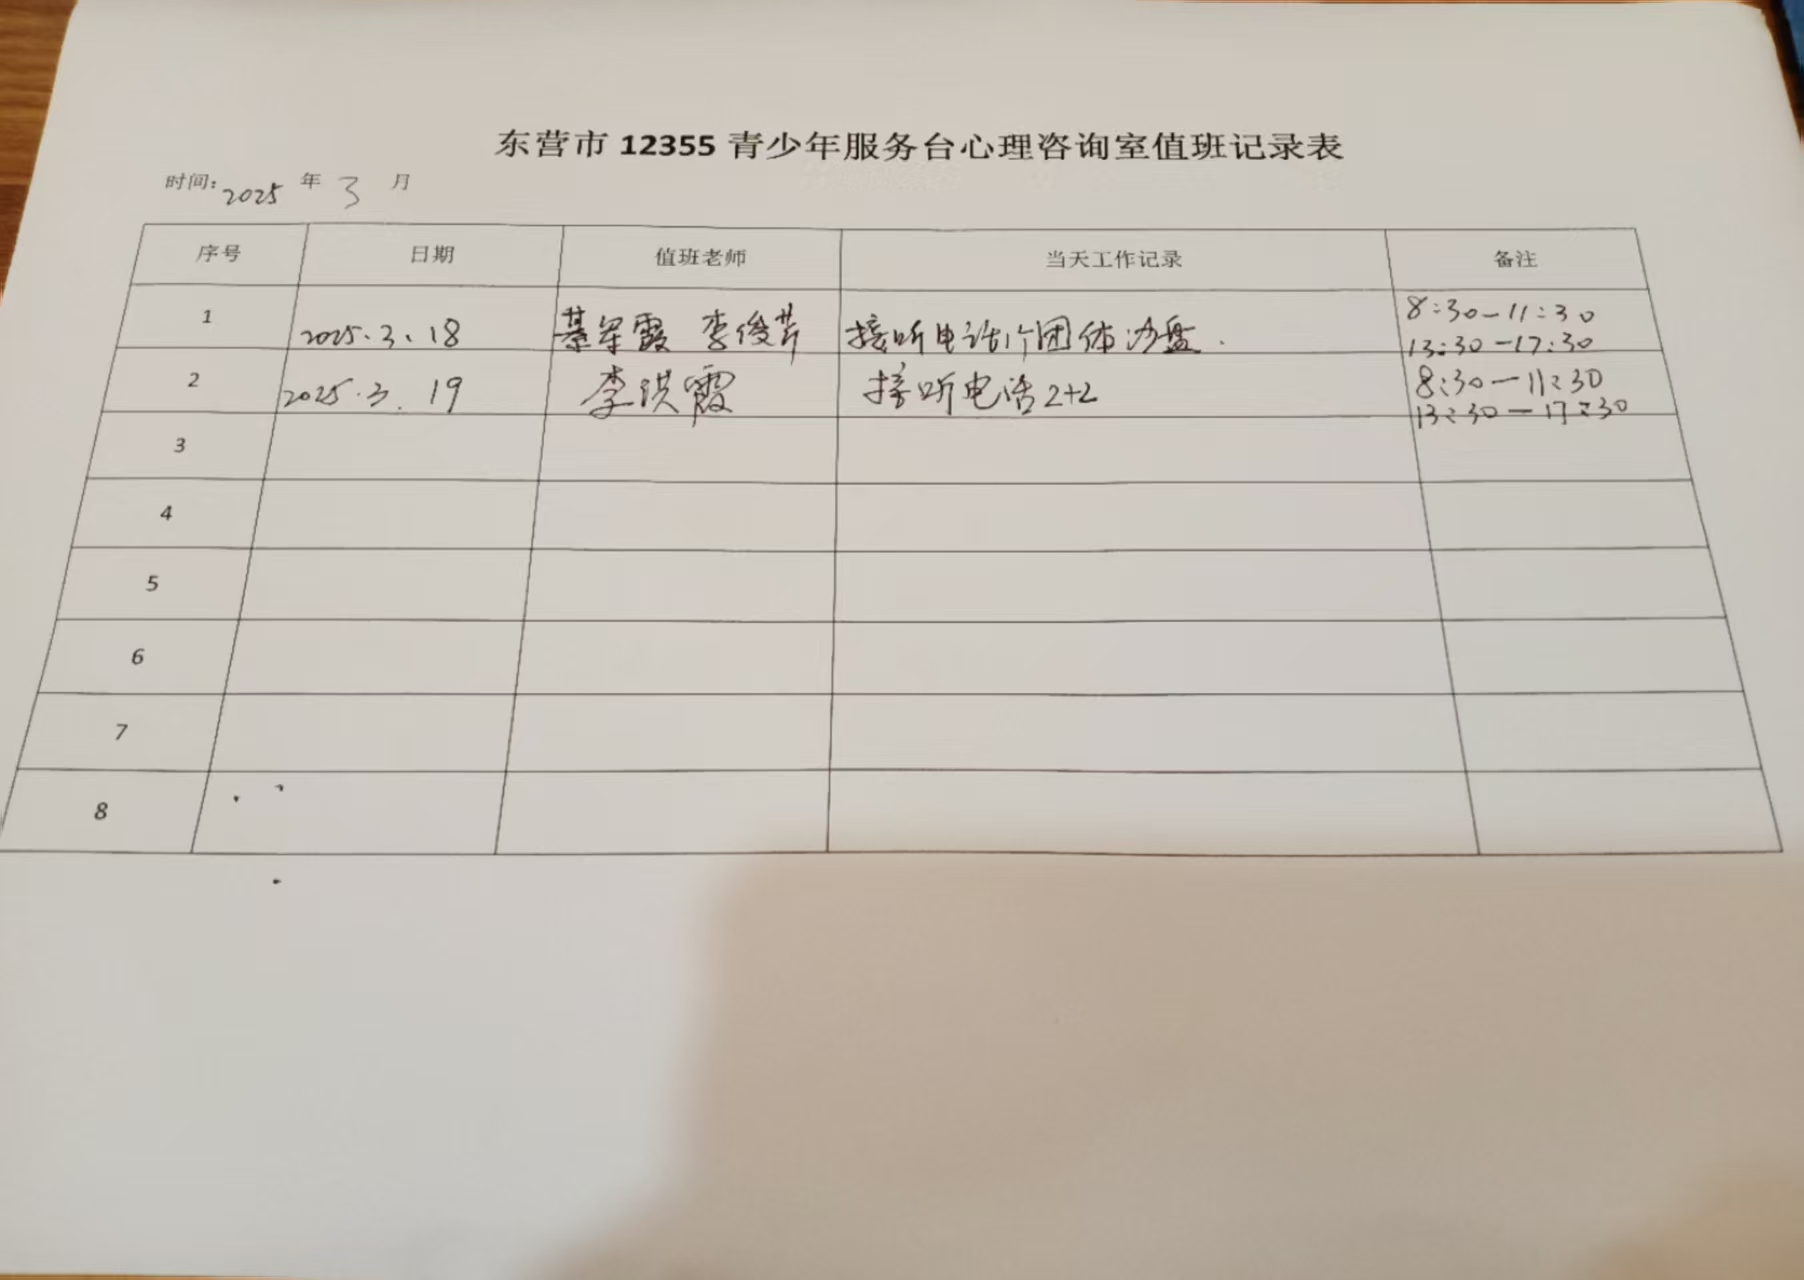 东营市 12355 青少年服务台心理咨询室值班记录表
时间: 2025 年 3 月
序号 日期 值班老师 当天工作记录 备注
1 2025.3.18 綦军霞 李俊芹 接听电话1个团体沙盘. 8:30-11:30
13:30-17:30
2 2025.3.19 李洪霞 接听电话2+2 8:30-11:30
13:30-17:30
3
4
5
6
7
8